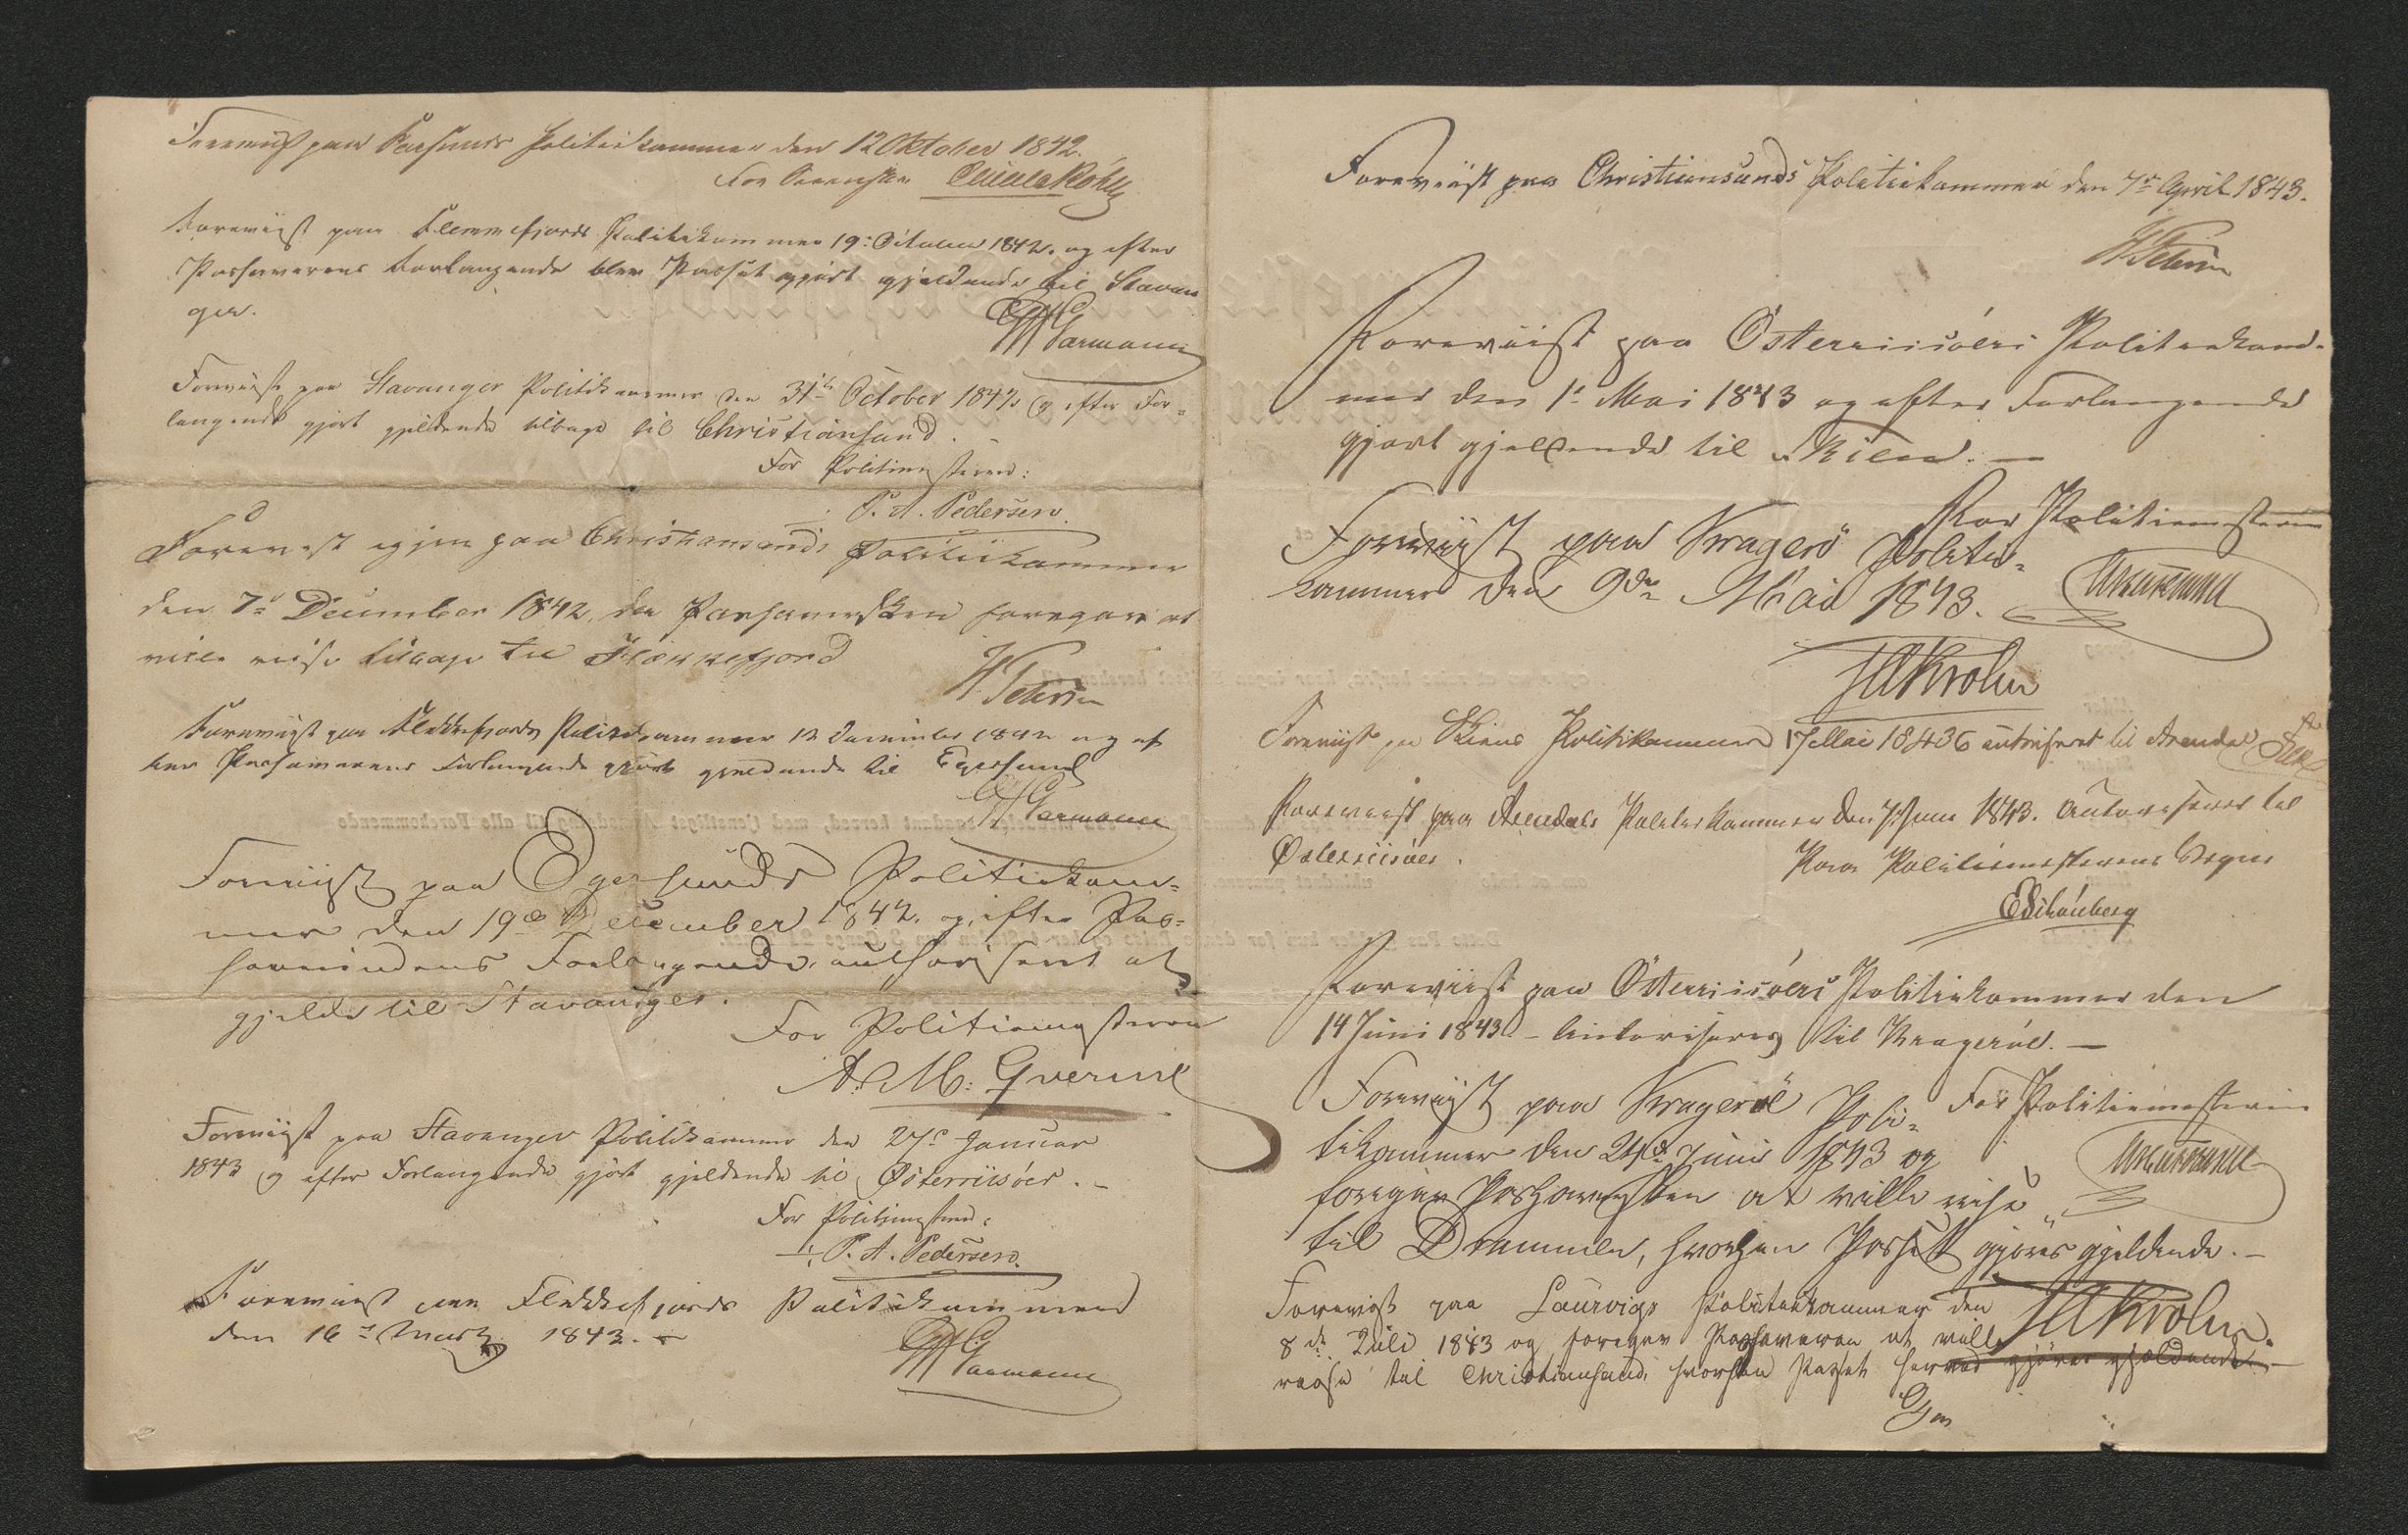 Foreviist paa Farsunds Politikammer den 12 Oktober 1842.
For
Foreviist paa Flekkefjords Politikammer 19: October 1842. og efter
Passhaverens Forlangende blev Passet gjort gjeldende til Stavan
ger.
Garmann
Foreviist paa Stavanger Politikammer den 31te October 1842 og efter For-
langende gjort gjeldende tilbage til Christiansand. -
For Politimesteren:
P. A. Pedersen
Forevist igjen paa Christiansands Politiekammer
den 7de December 1842, da Pashaversken foregav at
ville reise tilbage til Flekkefjord
Foreviist paa Flekkefjords Politikammer 12 December 1842 og ef
ter Passhaverens Forlangende gjort gjeldende til Egersund
Garmann
Foreviist paa Egersunds Politiekam-
mer den 19de December 1842. og efter Pas-
haverindens Forlangende authoriseret at
gjelde til Stavanger.
For Politiemesteren
A. M:
Foreviist paa Stavanger Politikammer den 27de Januar
1843 og efter Forlangende gjort gjeldende til Østerriisöer. -
For Politimesteren:
P. A. Pedersen
Foreviist paa Flekkefjords Politikammer
den 16de Marts 1843. -
Garmann
Foreviist paa Christiansands Politiekammer den 7de April 1843.
Foreviist paa Österriisöers Politiekam-
mer den 1ste Mai 1843 og efter Forlangende
gjort gjeldende til Skien. -
For Politiemesteren
Foreviist paa Kragerö Politie-
kammer den 9de Mai 1843.
Krohn
Foreviist paa Skiens Politikammer 17 Mai 1843 & autoriseret til Arendal
Foreviist paa Arendals Politiekammer den 7: Juni 1843. Autoriseres til
Østerriisöer.
Paa Politiemesterens Vegne
E Schönberg
Foreviist paa Österriisöers Politiekammer den
14 Juni 1843. - Autoriseres til Krageröe. -
For Politiemesteren
Foreviist paa Krageröe Poli-
tikammer den 24de Juni 1843 og
foregav Pashaversken at ville reise
til Drammen, hvorhen Passet gjöres gjeldende. -
Krohn.
Foreviist paa Laurvigs Politiekammer den
8de Juli 1843 og foregav Passhaveren at ville
reise til Christiansand, hvorhen Passet herved gjöres gjeldende. -